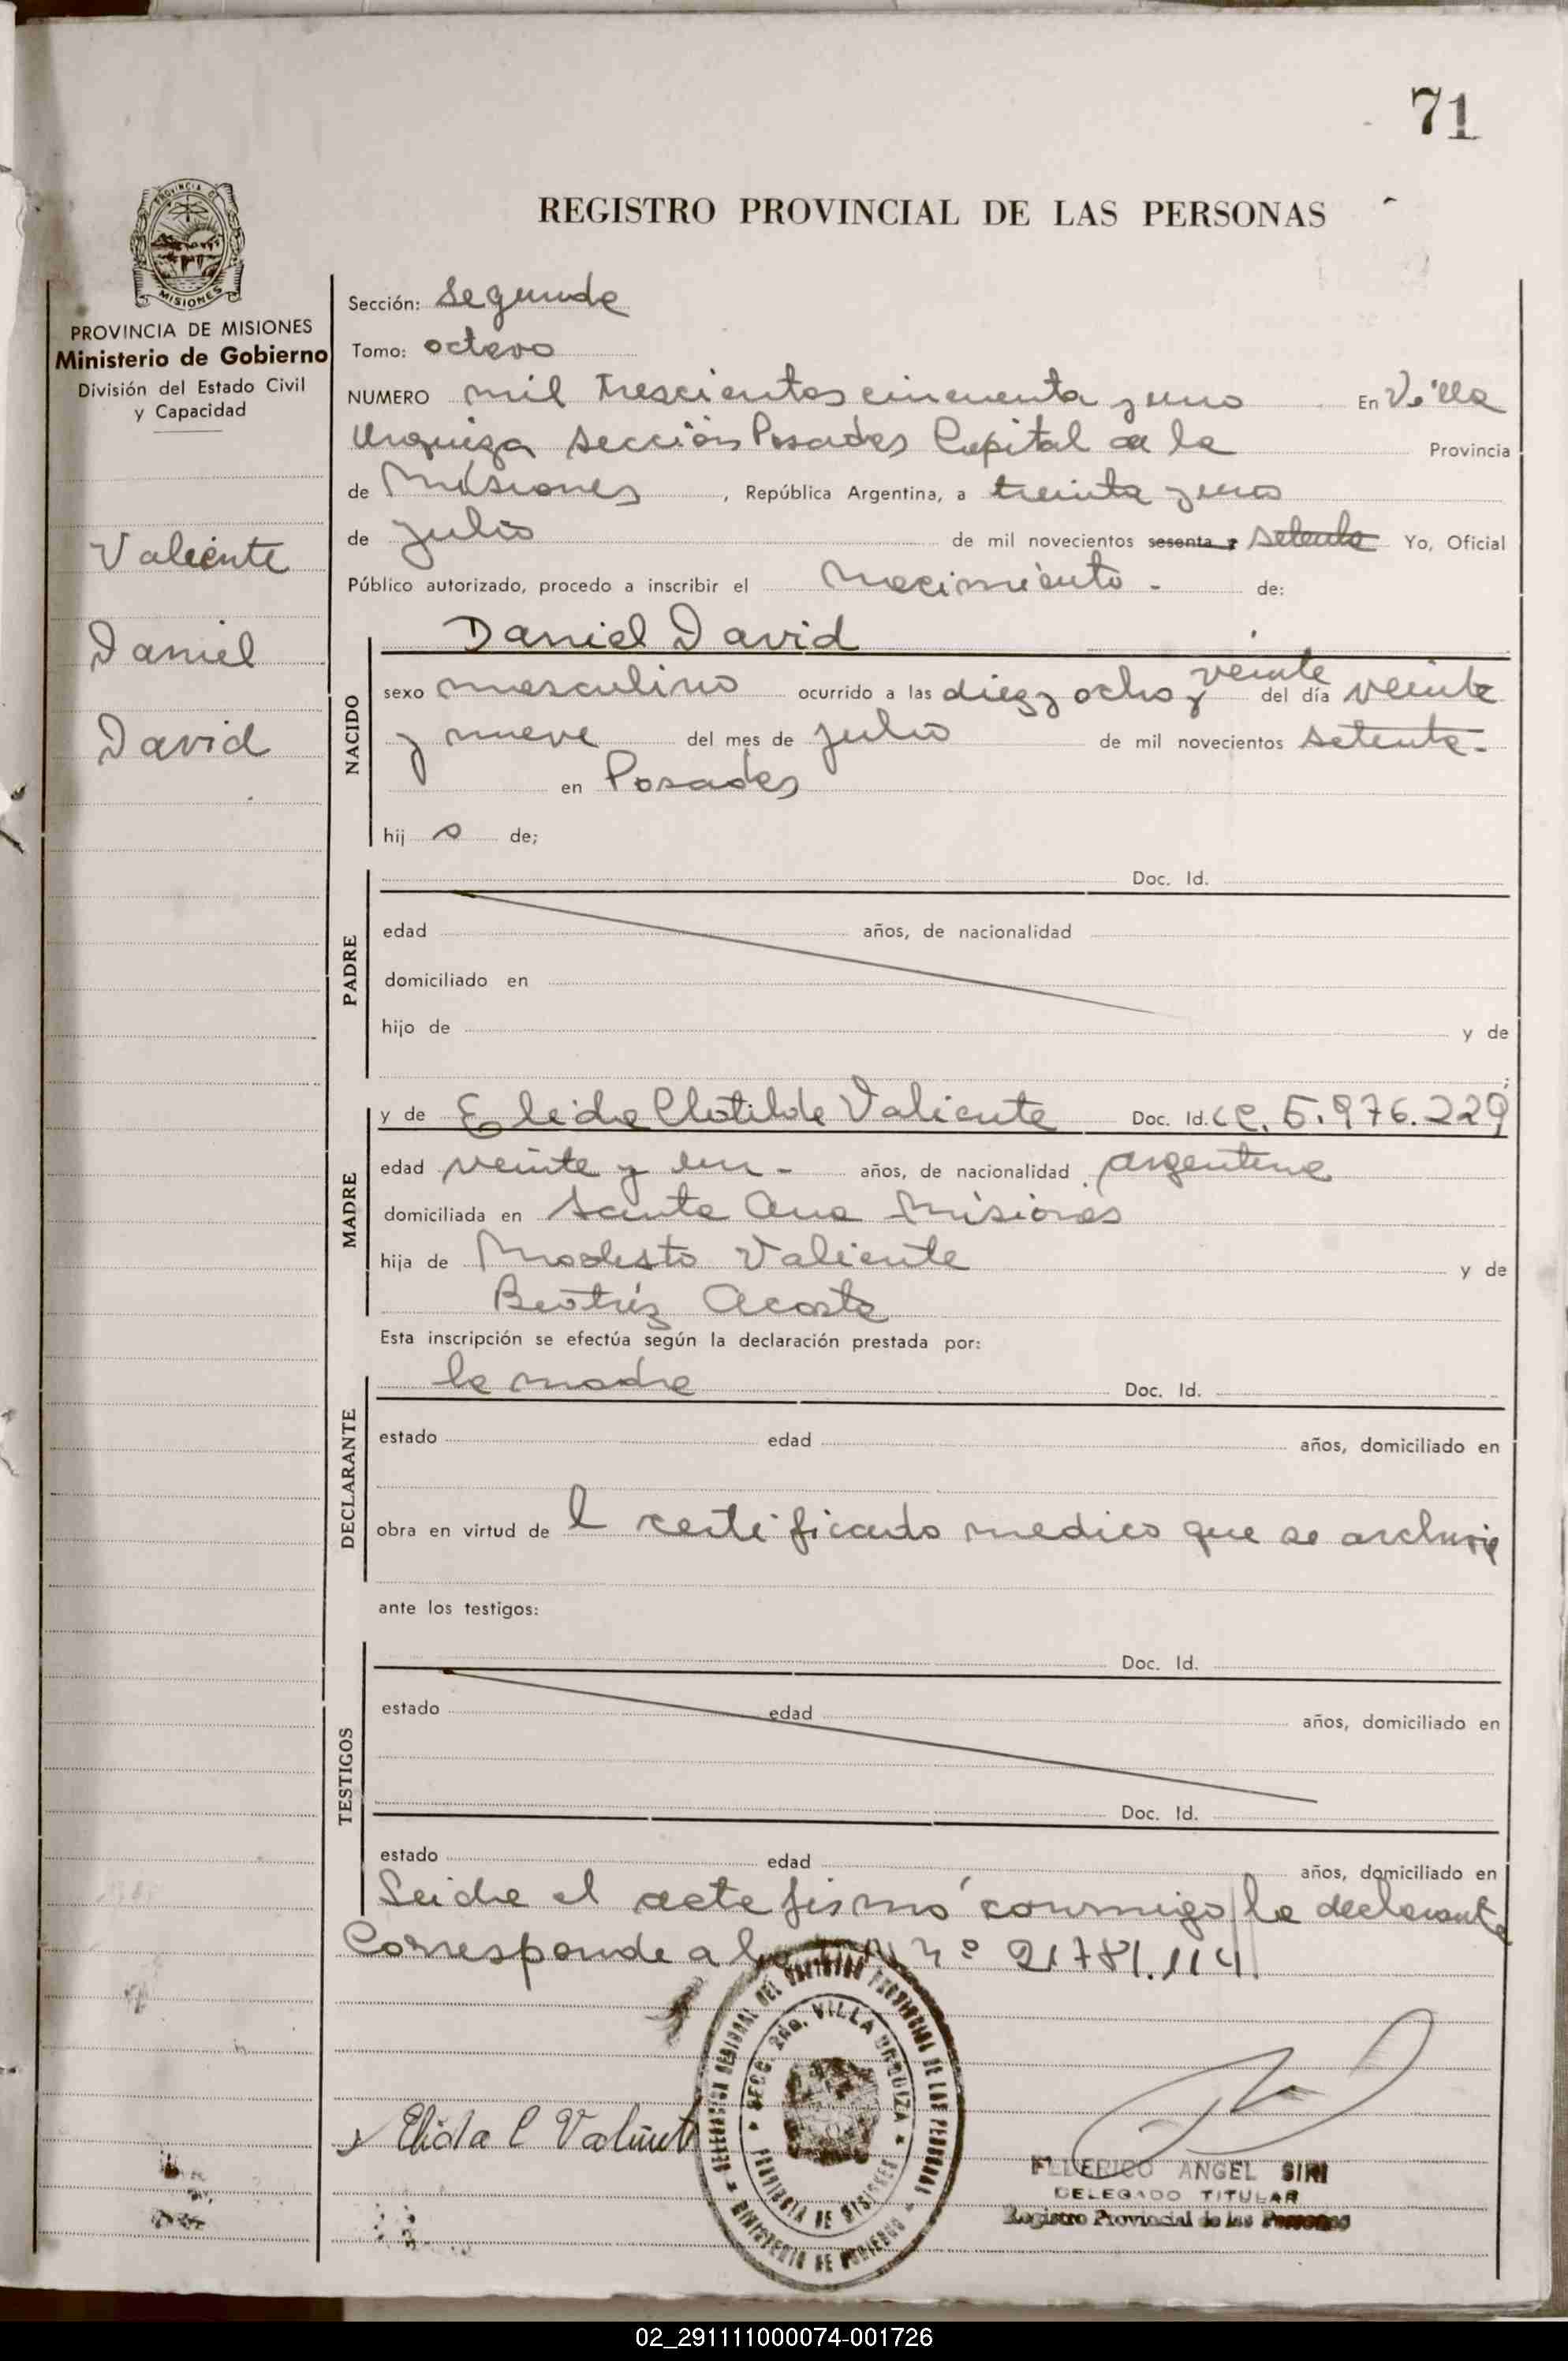 71
REGISTRO PROVINCIAL DE LAS PERSONAS
PROVINCIA DE MISIONES
Ministerio de Gobierno
División del Estado Civil
y Capacidad
Valiente
Daniel
David
Sección: Segunda
Tomo: octavo
NUMERO mil trescientos cincuenta y uno En Villa
Urquiza Sección Posadas Capital de la Provincia
de Misiones, República Argentina, a treinta y uno
de julio de mil novecientos sesenta y setenta Yo, Oficial
Público autorizado, procedo a inscribir el nacimiento - de:
NACIDO
Daniel David
sexo masculino ocurrido a las diez y ocho y veinte del día veinte
y nueve del mes de julio de mil novecientos setenta-
en Posadas
hij o de;
PADRE
Doc. Id.
edad años, de nacionalidad
domiciliado en
hijo de y de
MADRE
y de Elida Clotilde Valiente Doc. Id. CC. 5.976.229
edad veinte y un - años, de nacionalidad argentina
domiciliada en Santa Ana Misiones
hija de Modesto Valiente y de
Beatríz Acosta
Esta inscripción se efectúa según la declaración prestada por:
DECLARANTE
la madre Doc. Id.
estado edad años, domiciliado en
obra en virtud de l certificado medico que se archiva
ante los testigos:
TESTIGOS
Doc. Id.
estado edad años, domiciliado en
Doc. Id.
estado edad años, domiciliado en
Leida el acta firmó conmigo la declarante
Corresponde al nº 21781.114
Elida C Valiente
DELEGACION REGIONAL DEL REGISTRO PROVINCIAL DE LAS PERSONAS
MINISTERIO DE GOBIERNO
SECC. 2da. VILLA URQUIZA
PROVINCIA DE MISIONES
FEDERICO ANGEL SIRI
DELEGADO TITULAR
Registro Provincial de las Personas
02_291111000074-001726